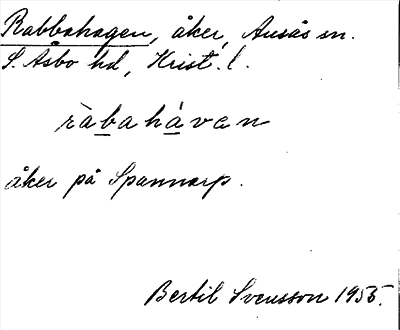 Rabbahagen, åker, Ausås sn.
S. Åsbo hd, Krist. l.
ràbahávan
åker på Spannarp.
Bertil Svensson 1955.